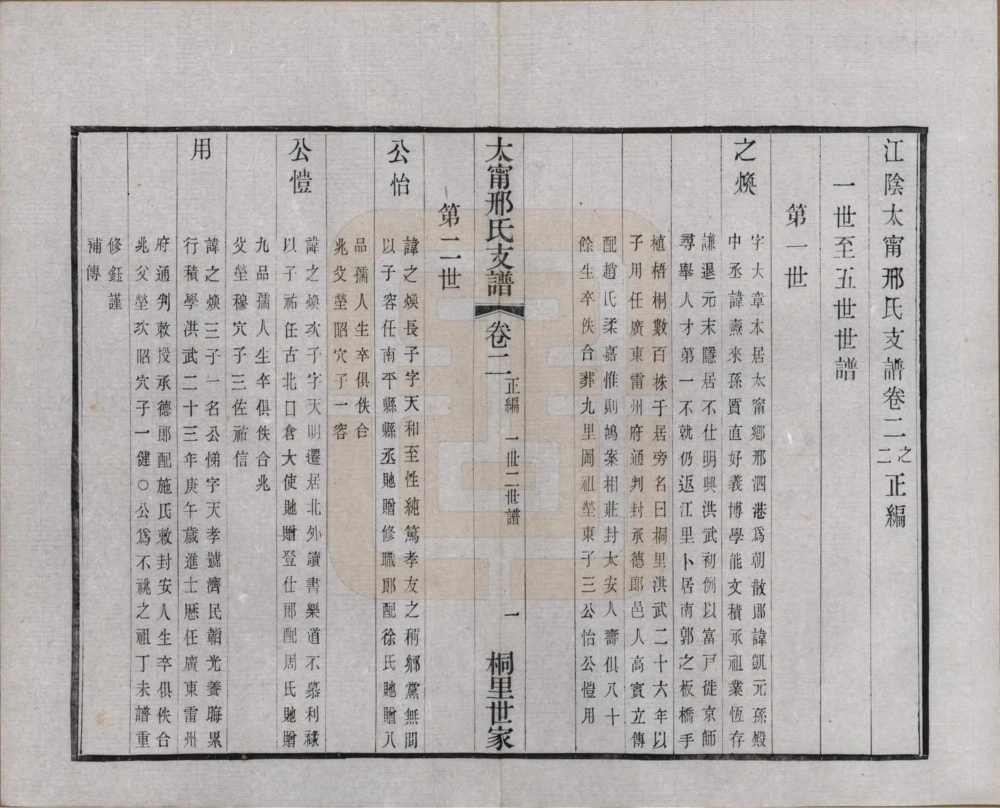 江陰太甯邢氏支譜卷二之二正編
一世至五世世譜
第一世
之煥
字大章本居太甯鄉邢泗港爲朝散郎諱凱元孫殿
中丞諱燾來孫質直好義博學能文積承祖業恆存
謙退元末隱居不仕明興洪武初例以富戸徙京師
尋舉人才第一不就仍返江里卜居南郭之板橋手
植梧桐數百株于居旁名曰桐里洪武二十六年以
子用任廣東雷州府通判封承德郎邑人高賓立傳
配趙氏柔嘉惟則鴻案相莊封太安人壽俱八十
餘生卒佚合葬九里岡祖塋東子三公怡公愷用
太甯邢氏支譜
卷二
正編
一世二世譜
一
桐里世家
第二世
公怡
諱之煥長子字天和至性純篤孝友之稱鄉黨無間
以子容任南平縣縣丞貤贈修職郎配徐氏貤贈八
品孺人生卒俱佚合
兆父塋昭穴子一容
公愷
諱之煥次子字天明遷居北外讀書樂道不慕利祿
以子祐任古北口倉大使貤贈登仕郎配周氏貤贈
九品孺人生卒俱佚合兆
父塋穆穴子三佐祐信
用
諱之煥三子一名公悌字天孝號濟民韜光養晦累
行積學洪武二十三年庚午歲進士歷任廣東雷州
府通判敕授承德郎配施氏敕封安人生卒俱佚合
兆父塋次昭穴子一健○公爲不祧之祖丁未譜重
修鈺謹
補傳